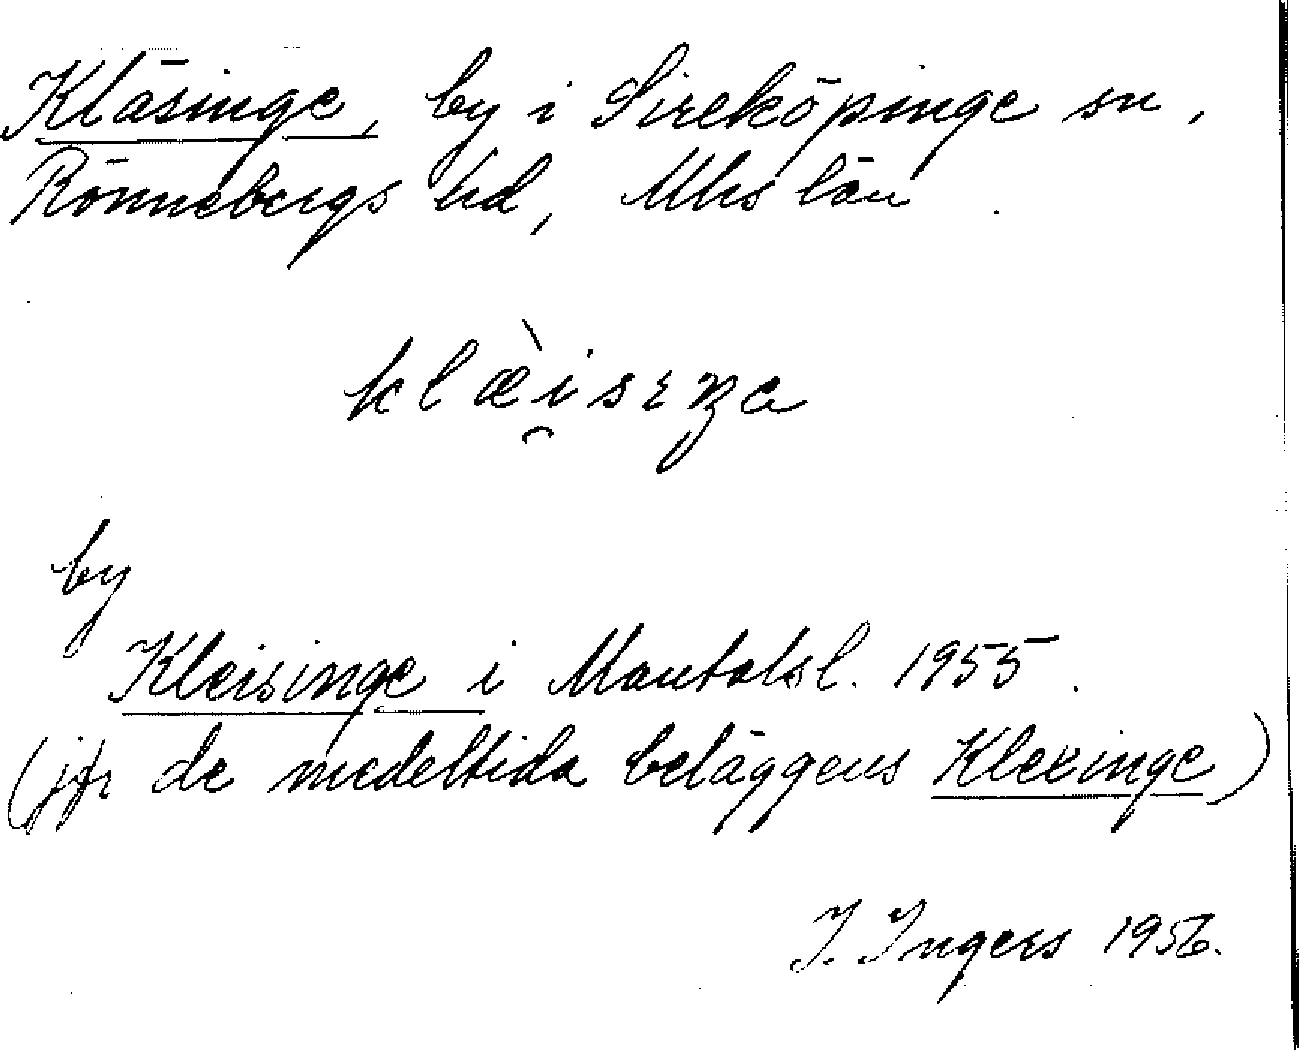 Kläsinge, by i Sireköpinge sn,
Rönnebergs hd, Mhs län.
klæ̀i̯sɛŋa
by
Kleisinge i Mantalsl. 1955.
(jfr de medeltida beläggens Klexinge)
I. Ingers 1956.